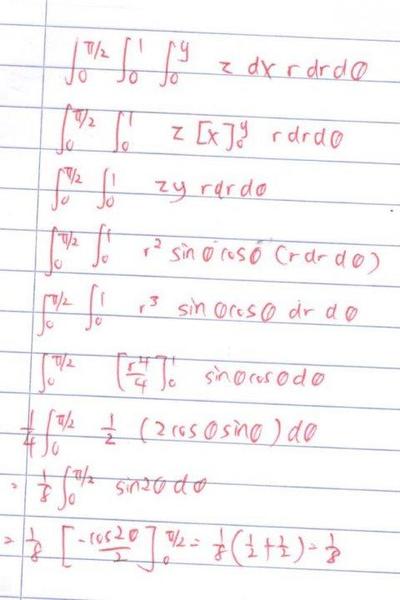 ∫₀^π/2 ∫₀^1 ∫₀^y z dx r dr dθ
∫₀^π/2 ∫₀^1 z [x]₀^y r dr dθ
∫₀^π/2 ∫₀^1 zy r dr dθ
∫₀^π/2 ∫₀^1 r² sinθ cosθ (r dr dθ)
∫₀^π/2 ∫₀^1 r³ sinθ cosθ dr dθ
∫₀^π/2 [r⁴/4]₀^1 sinθ cosθ dθ
1/4 ∫₀^π/2 1/2 (2cosθ sinθ) dθ
= 1/8 ∫₀^π/2 sin2θ dθ
= 1/8 [-cos2θ/2]₀^π/2 = 1/8 (1/2 + 1/2) = 1/8